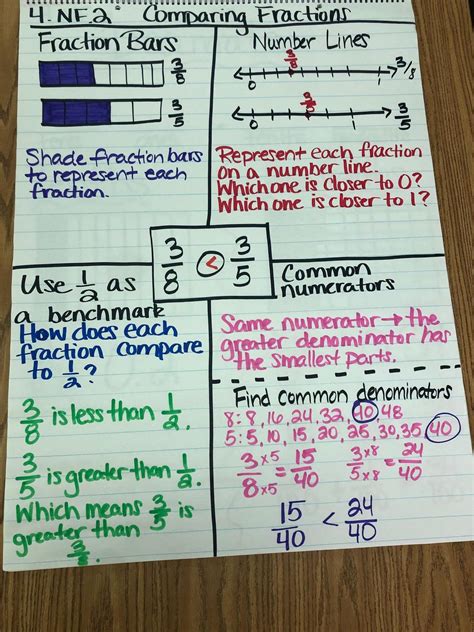 4.NF.2: Comparing Fractions
Fraction Bars
3/8
3/5
Shade fraction bars
to represent each
fraction.
Number Lines
3/8
0 1 3/8
3/5
0 1 3/5
Represent each fraction
on a number line.
Which one is closer to 0?
Which one is closer to 1?
3/8 < 3/5
Use 1/2 as
a benchmark
How does each
fraction compare
to 1/2?
3/8 is less than 1/2.
3/5 is greater than 1/2.
Which means 3/5 is
greater than
3/8.
Common
numerators
Same numerator → the
greater denominator has
the smallest parts.
Find common denominators
8: 8, 16, 24, 32, 40, 48
5: 5, 10, 15, 20, 25, 30, 35, 40
3 x5 / 8 x5 = 15/40
3 x8 / 5 x8 = 24/40
15/40 < 24/40